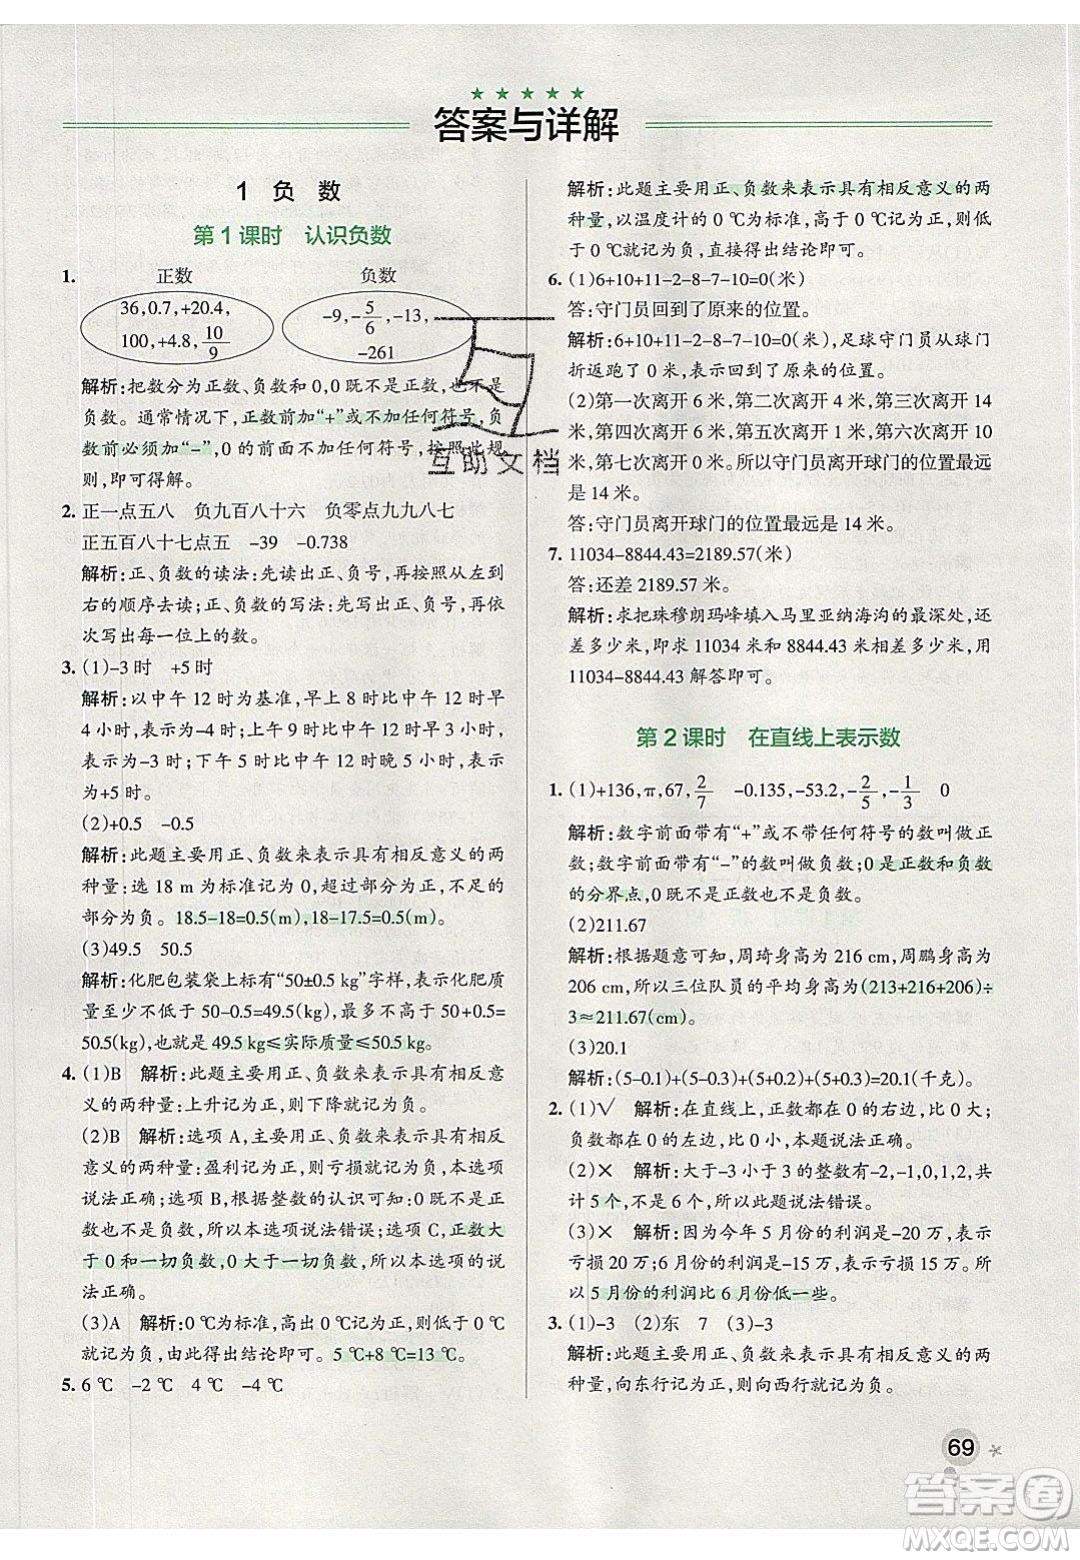 答案与详解
1 负 数
第1课时 认识负数
1. 正数 负数
36,0.7,+20.4,
100,+4.8,10/9
-9,-5/6,-13,
-261
解析:把数分为正数、负数和0,0既不是正数,也不是
负数。通常情况下,正数前加“+”或不加任何符号,负
数前必须加“-”,0的前面不加任何符号,按照此规
则,即可得解。
2. 正一点五八 负九百八十六 负零点九九八七
正五百八十七点五 -39 -0.738
解析:正、负数的读法:先读出正、负号,再按从左到
右的顺序去读;正、负数的写法:先写出正、负号,再依
次写出每一位上的数。
3. (1)-3时 +5时
解析:以中午12时为基准,早上8时比中午12时早
4小时,表示为-4时;上午9时比中午12时早3小时,
表示为-3时;下午5时比中午12时晚5小时,表示
为+5时。
(2)+0.5 -0.5
解析:此题主要用正、负数来表示具有相反意义的两
种量:选18 m为标准记为0,超过部分为正,不足的
部分为负。18.5-18=0.5(m),18-17.5=0.5(m)。
(3)49.5 50.5
解析:化肥包装袋上标有“50±0.5 kg”字样,表示化肥质
量至少不低于50-0.5=49.5(kg),不高于50+0.5=
50.5(kg),也就是49.5 kg≤实际质量≤50.5 kg。
4. (1)B 解析:此题主要用正、负数来表示具有相反意
义的两种量:上升记为正,则下降就记为负。
(2)B 解析:选项A,主要用正、负数来表示具有相反
意义的两种量:盈利记为正,则亏损就记为负,本选项
说法正确;选项B,根据整数的认识可知,0既不是正
数也不是负数,所以本选项说法错误;选项C,正数大
于0和一切负数,0大于一切负数,所以本选项的说
法正确。
(3)A 解析:0 ℃为标准,高出0 ℃记为正,低于0 ℃
就记为负,由此得出结论即可。5 ℃+8 ℃=13 ℃。
5. 6 ℃ -2 ℃ 4 ℃ -4 ℃
解析:此题主要用正、负数来表示具有相反意义的两
种量,以温度计的0 ℃为标准,高于0 ℃记为正,则低
于0 ℃就记为负,直接得出结论即可。
6. (1)6+10+11-2-8-7-10=0(米)
答:守门员回到了原来的位置。
解析:6+10+11-2-8-7-10=0(米),足球守门员从球门
折返跑了0米,就是回到了原来的位置。
(2)第一次离开6米,第二次离开4米,第三次离开14
米,第四次离开6米,第五次离开2米,第六次离开10
米,第七次离开0米。所以守门员离开球门的位置最远
是14米。
答:守门员离开球门的位置最远是14米。
7. 11034-8844.43=2189.57(米)
答:还差2189.57米。
解析:求把珠穆朗玛峰填入马里亚纳海沟的最深处,还
差多少米,即求11034比8844.43多多少米,用
11034-8844.43解答即可。
第2课时 在直线上表示数
1. (1)+136,π,67,2/7 -0.135,-53.2,-2/5,-1/3 0
解析:数字前面带有“+”或不带任何符号的数叫做正
数;数字前面带有“-”的数叫做负数;0是正数和负数
的分界点,0既不是正数也不是负数。
(2)211.67
解析:根据题意可知,周琦身高为216 cm,周鹏身高为
206 cm,所以三位队员的平均身高为(213+216+206)÷
3≈211.67(cm)。
(3)20.1
解析:(5-0.1)+(5-0.3)+(5+0.2)+(5+0.3)=20.1(千克)。
2. (1)√ 解析:在直线上,正数都在0的右边,比0大;
负数都在0的左边,比0小,本题说法正确。
(2)× 解析:大于-3小于3的整数有-2,-1,0,1,2,共
计5个,不是6个,所以此题说法错误。
(3)× 解析:因为今年5月份的利润是-20万,表示
亏损20万;6月份的利润是-15万,表示亏损15万。所
以5月份的利润比6月份低一些。
3. (1)-3 (2)东 7 (3)-3
解析:此题主要用正、负数来表示具有相反意义的两
种量,向东行记为正,则向西行就记为负。
互助文档
69
答案圈
MXQE.COM